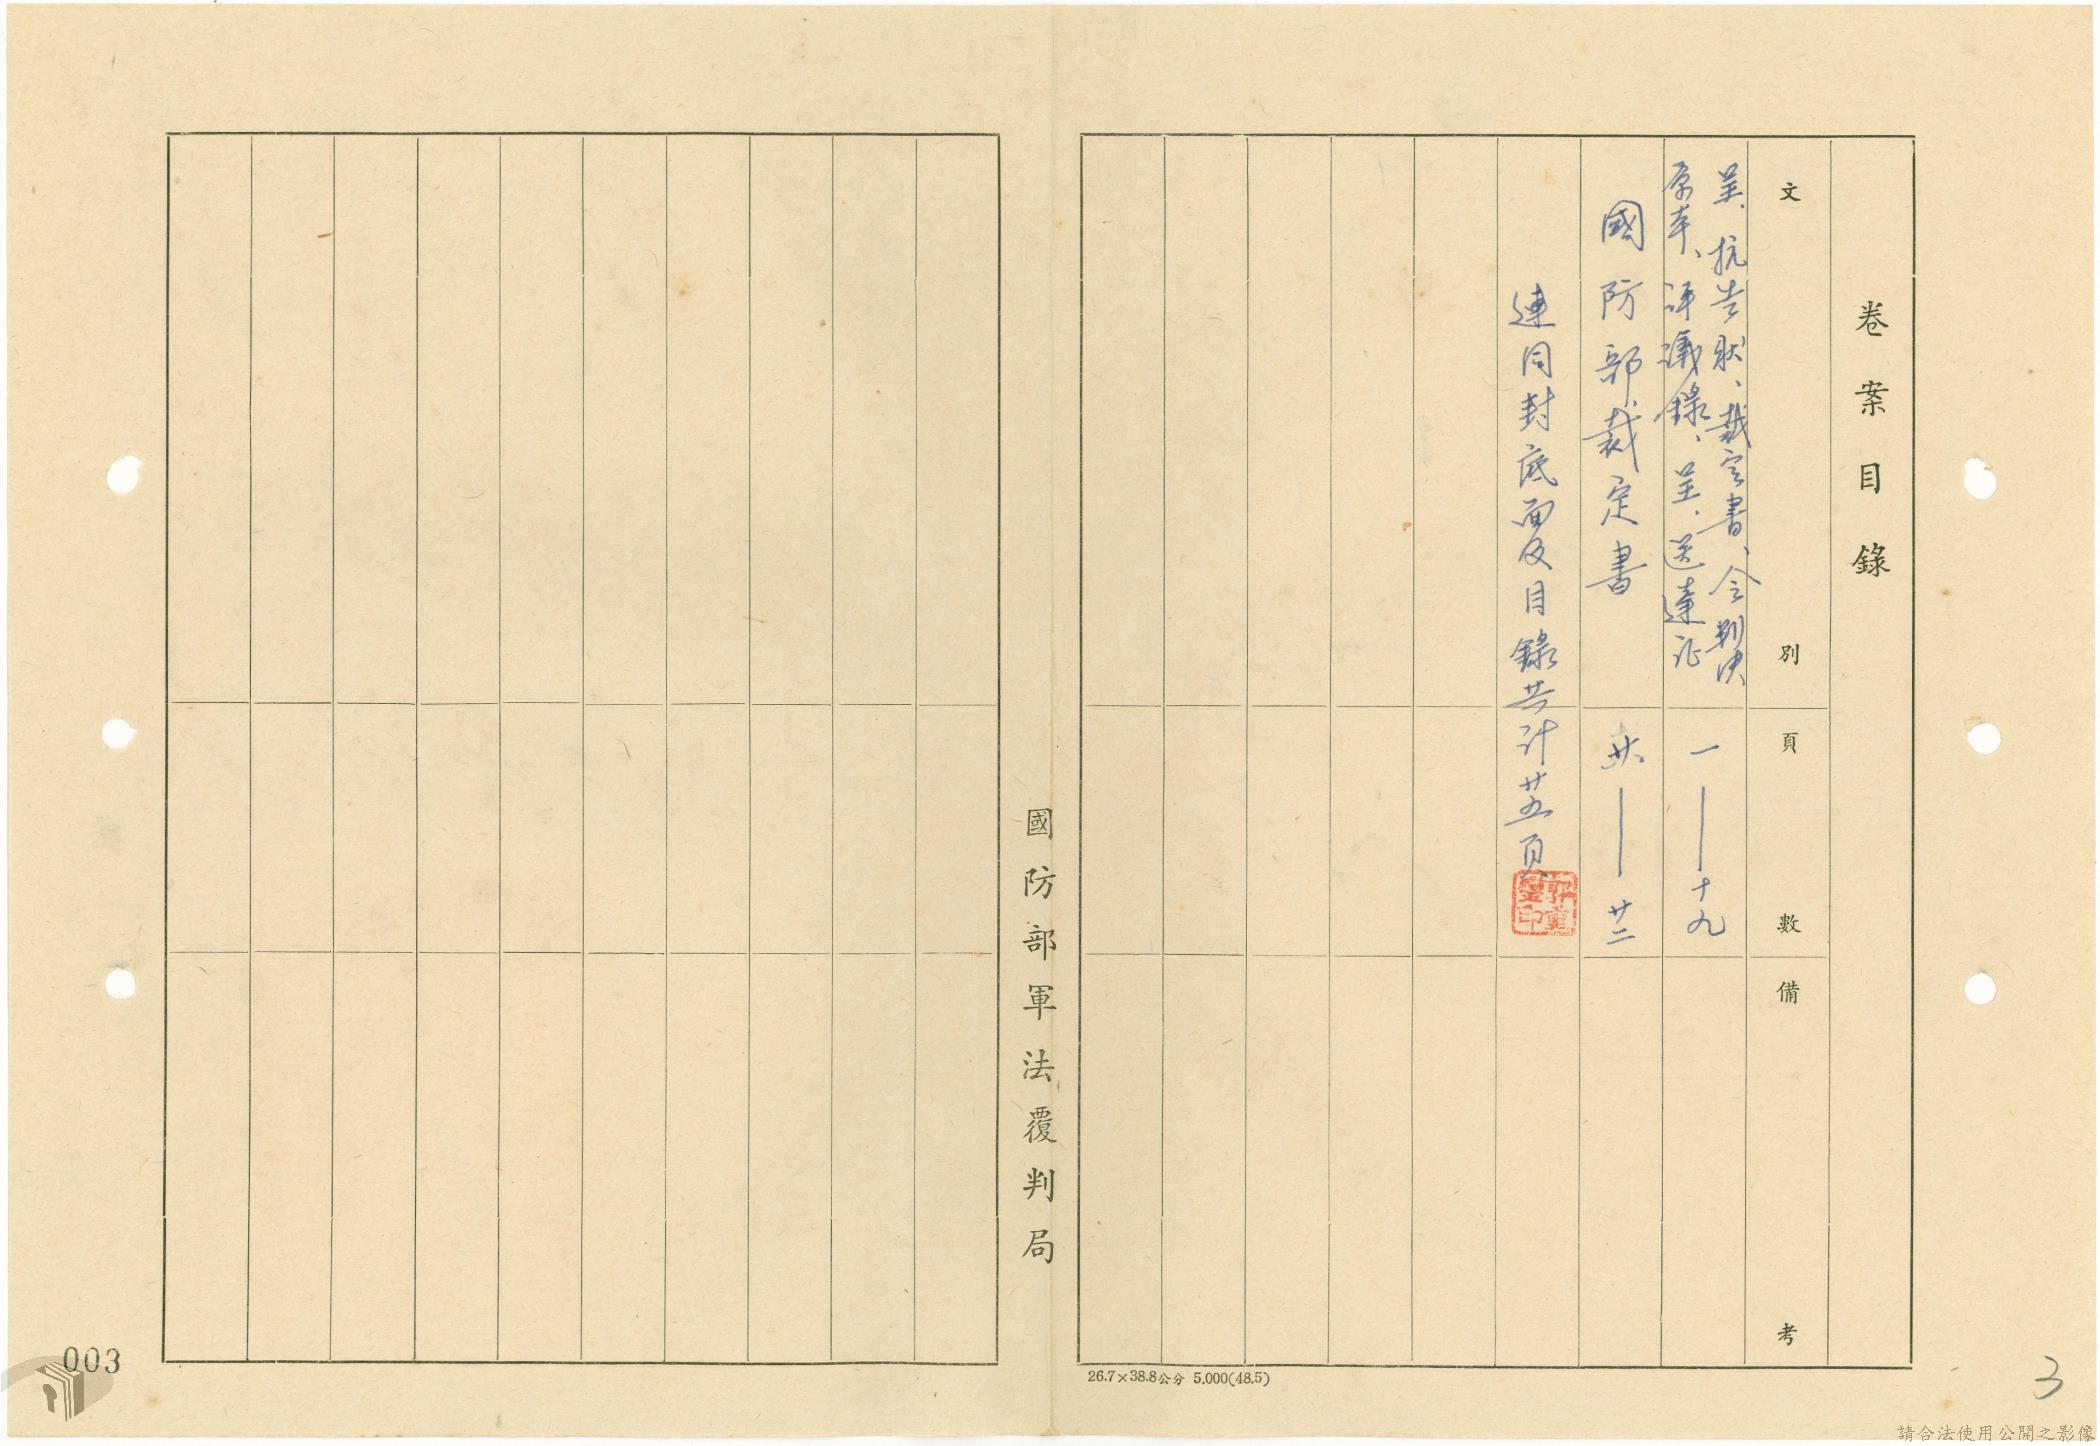 卷案目錄
文別
頁數
備考
呈、抗告狀、裁定書、令、判決
原本、評議錄、呈、送達証
一——十九
國防部裁定書
廿——廿二
連同封底面及目錄共計廿五頁
國防部軍法覆判局
26.7×38.8公分 5,000(48.5)
003
3
請合法使用公開之影像